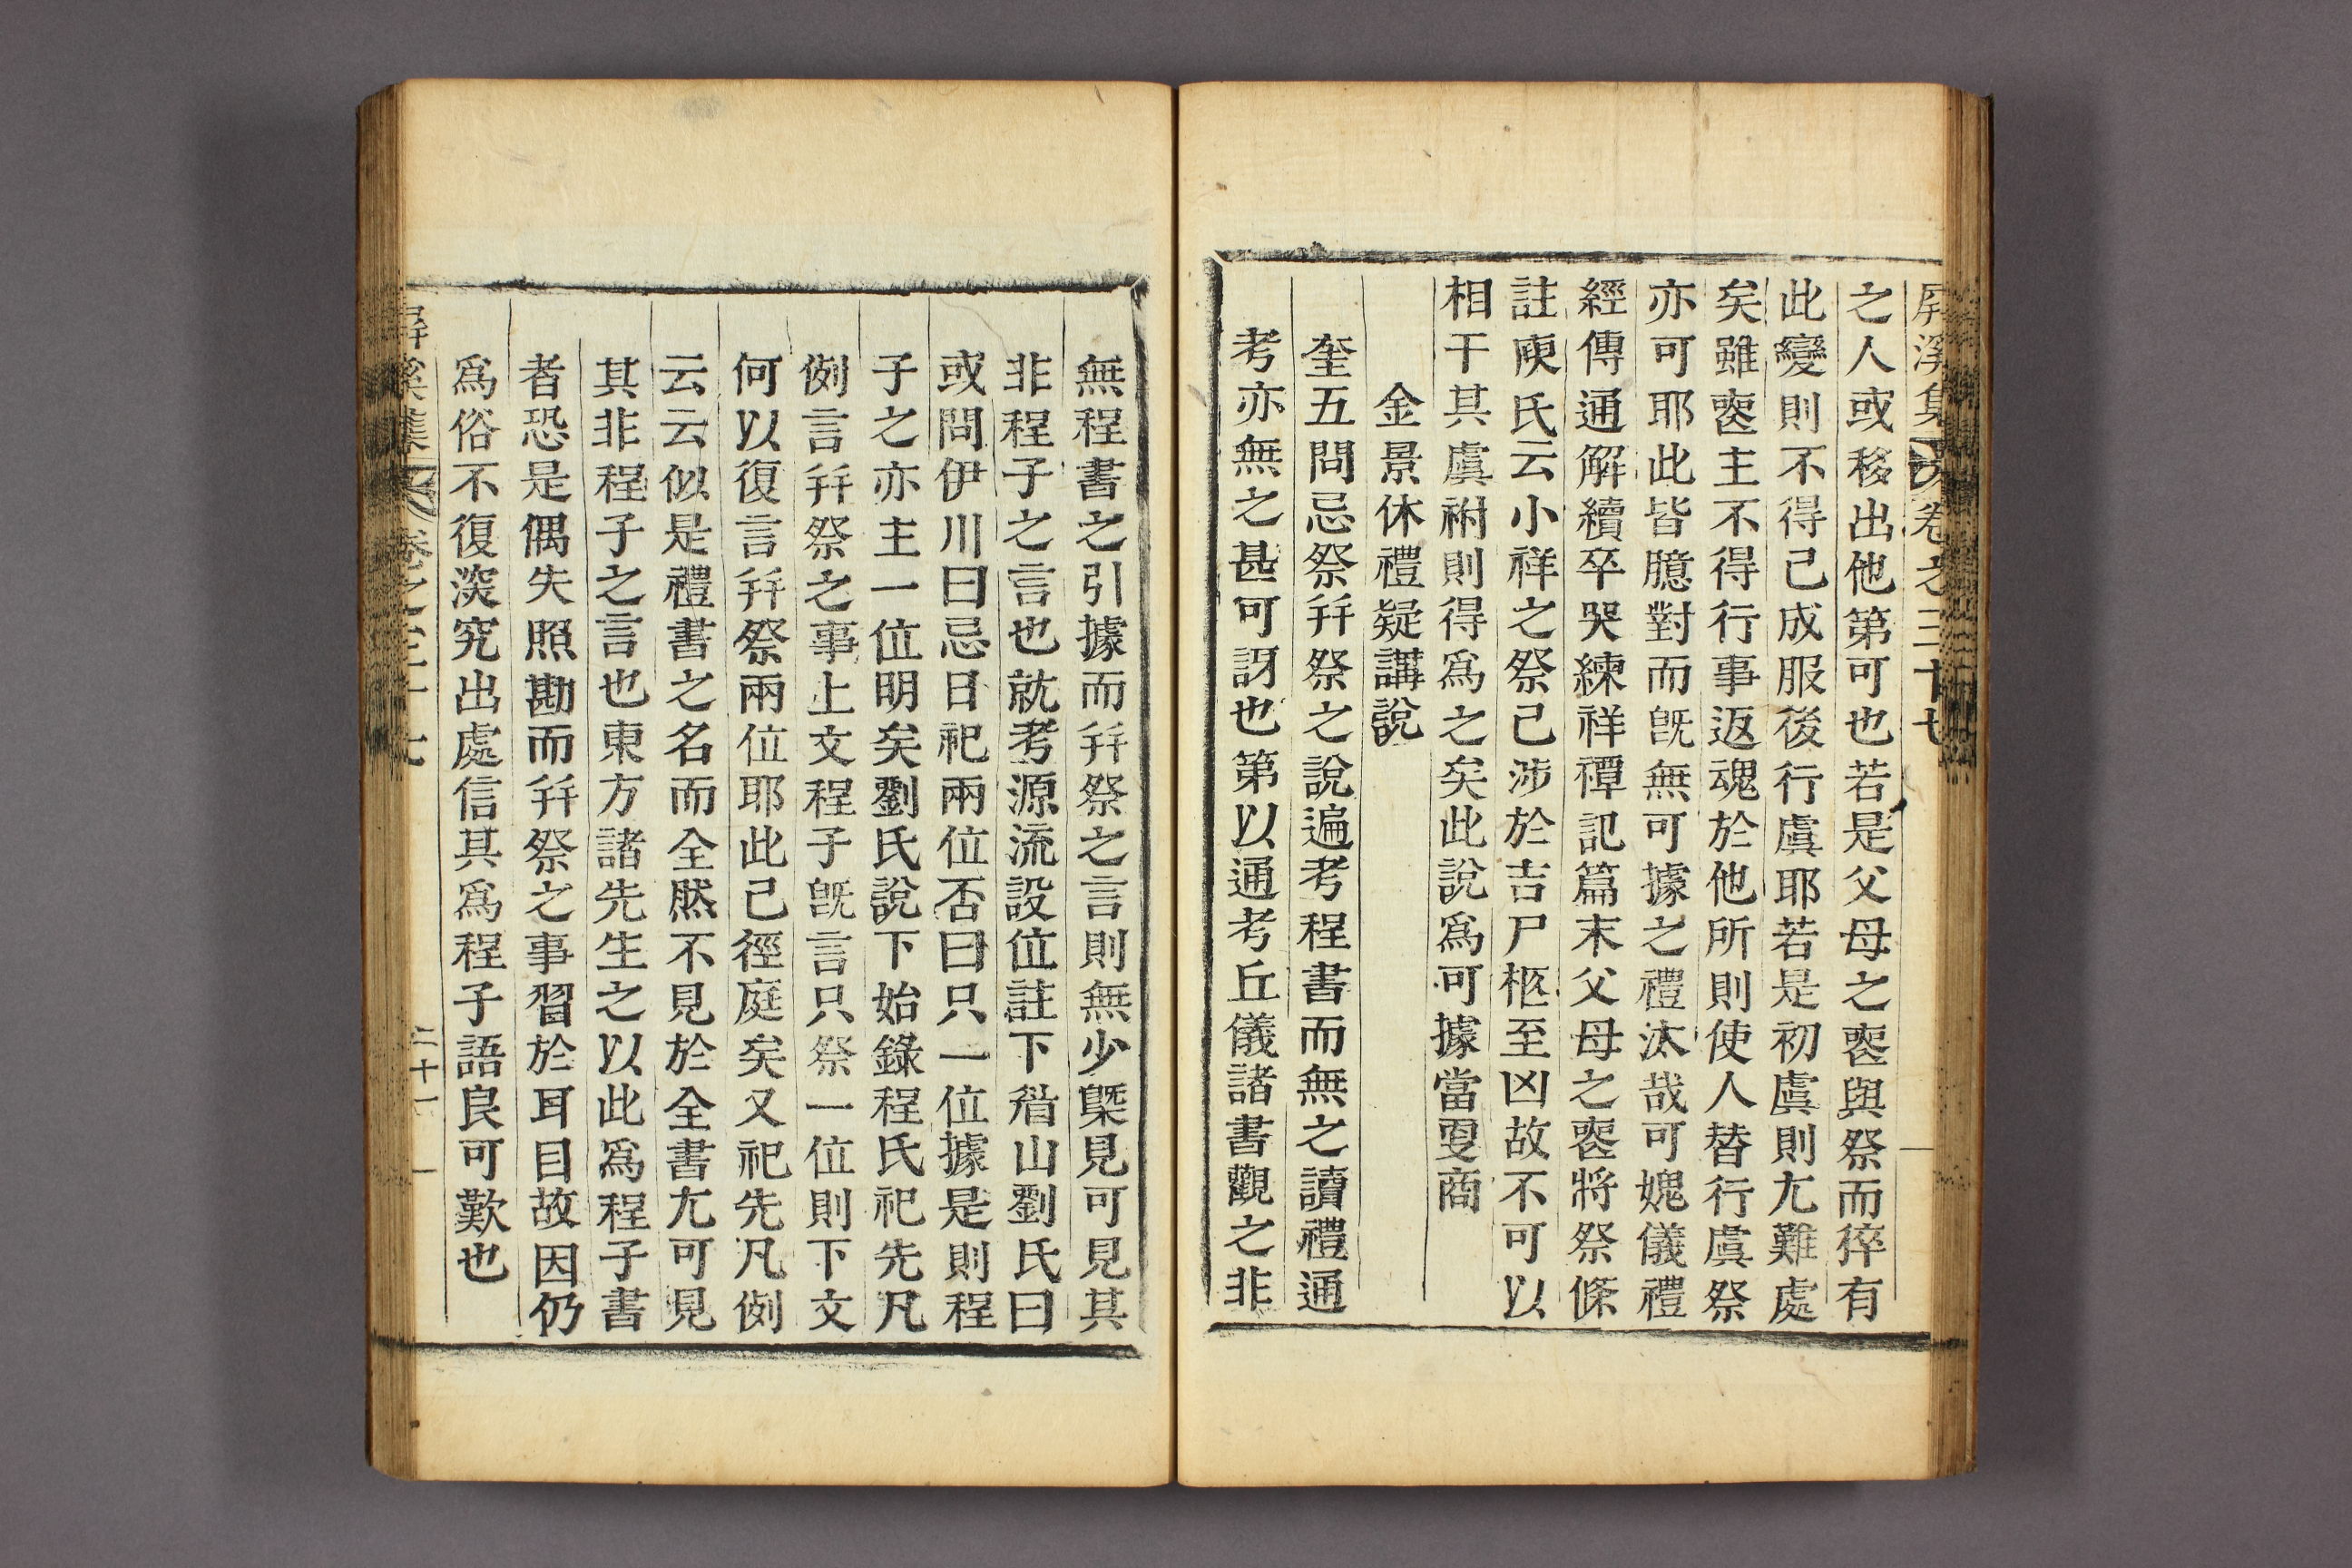 屛溪集 卷之三十七
之人或移出他第可也若是父母之䘮與祭而猝有
此變則不得已成服後行虞耶若是初虞則尤難處
矣雖䘮主不得行事返魂於他所則使人替行虞祭
亦可耶此皆臆對而旣無可據之禮汰哉可媿儀禮
經傳通解續卒哭練祥禫記篇末父母之䘮將祭條
註庾氏云小祥之祭已涉於吉尸柩至凶故不可以
相干其虞祔則得爲之矣此說爲可據當更商
金景休禮疑講說
奎五問忌祭幷祭之說遍考程書而無之讀禮通
考亦無之甚可訝也第以通考丘儀諸書觀之非
無程書之引據而幷祭之言則無少槩見可見其
非程子之言也就考源流設位註下眉山劉氏曰
或問伊川曰忌日祀兩位否曰只一位據是則程
子之亦主一位明矣劉氏說下始錄程氏祀先凡
例言幷祭之事上文程子旣言只祭一位則下文
何以復言幷祭兩位耶此已徑庭矣又祀先凡例
云云似是禮書之名而全然不見於全書尤可見
其非程子之言也東方諸先生之以此爲程子書
者恐是偶失照勘而幷祭之事習於耳目故因仍
爲俗不復深究出處信其爲程子語良可歎也
屛溪集 卷之三十七 二十一